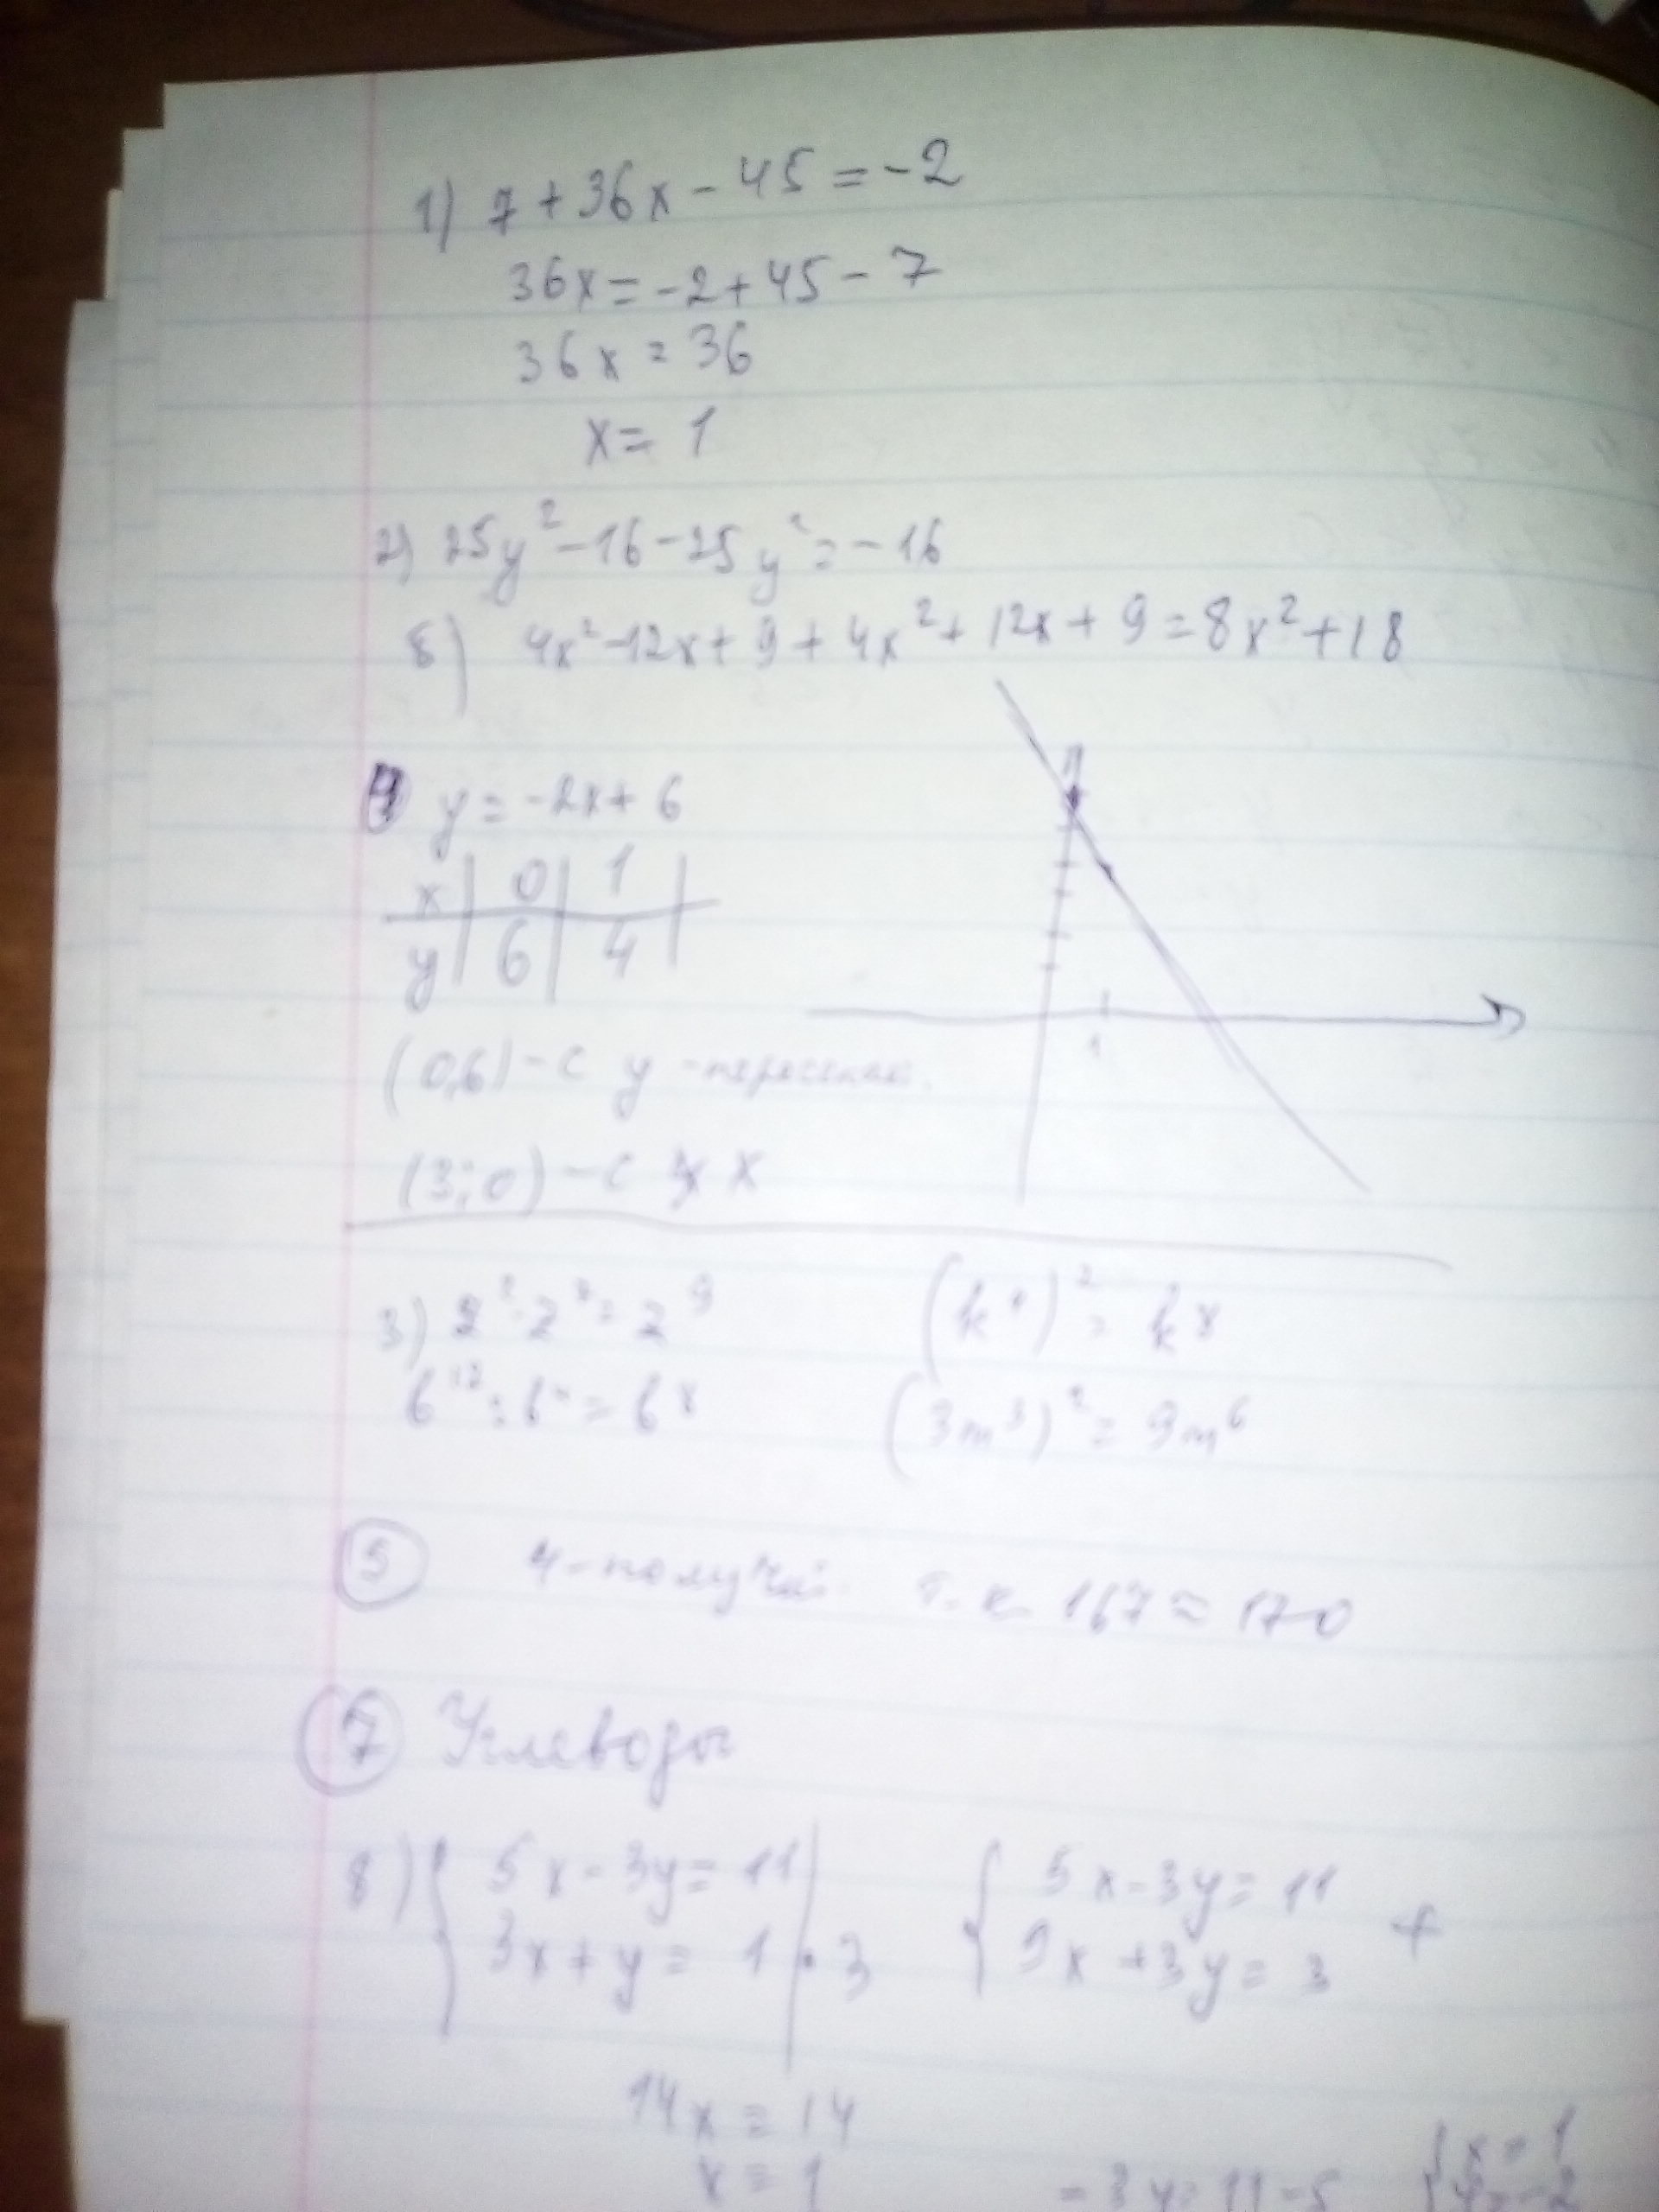 1) 7 + 36x - 45 = -2
36x = -2 + 45 - 7
36x = 36
x = 1
2) 25y² - 16 - 25y² = -16
б) 4x² - 12x + 9 + 4x² + 12x + 9 = 8x² + 18
4 y = -2x + 6
x | 0 | 1 |
y | 6 | 4 |
1
(0,6) - с y -пересекает.
(3; 0) - с x
3) 2² · 2⁷ = 2⁹ (k⁴)² = k⁸
b¹² : b⁴ = b⁸ (3m³)² = 9m⁶
5 4 - т.к. 167 ≈ 170
7 Углеводы
8) { 5x - 3y = 11 { 5x - 3y = 11
3x + y = 1 | · 3 9x + 3y = 3 +
14x = 14
x = 1 - 3y = 11 - 5 { x = 1
y = -2